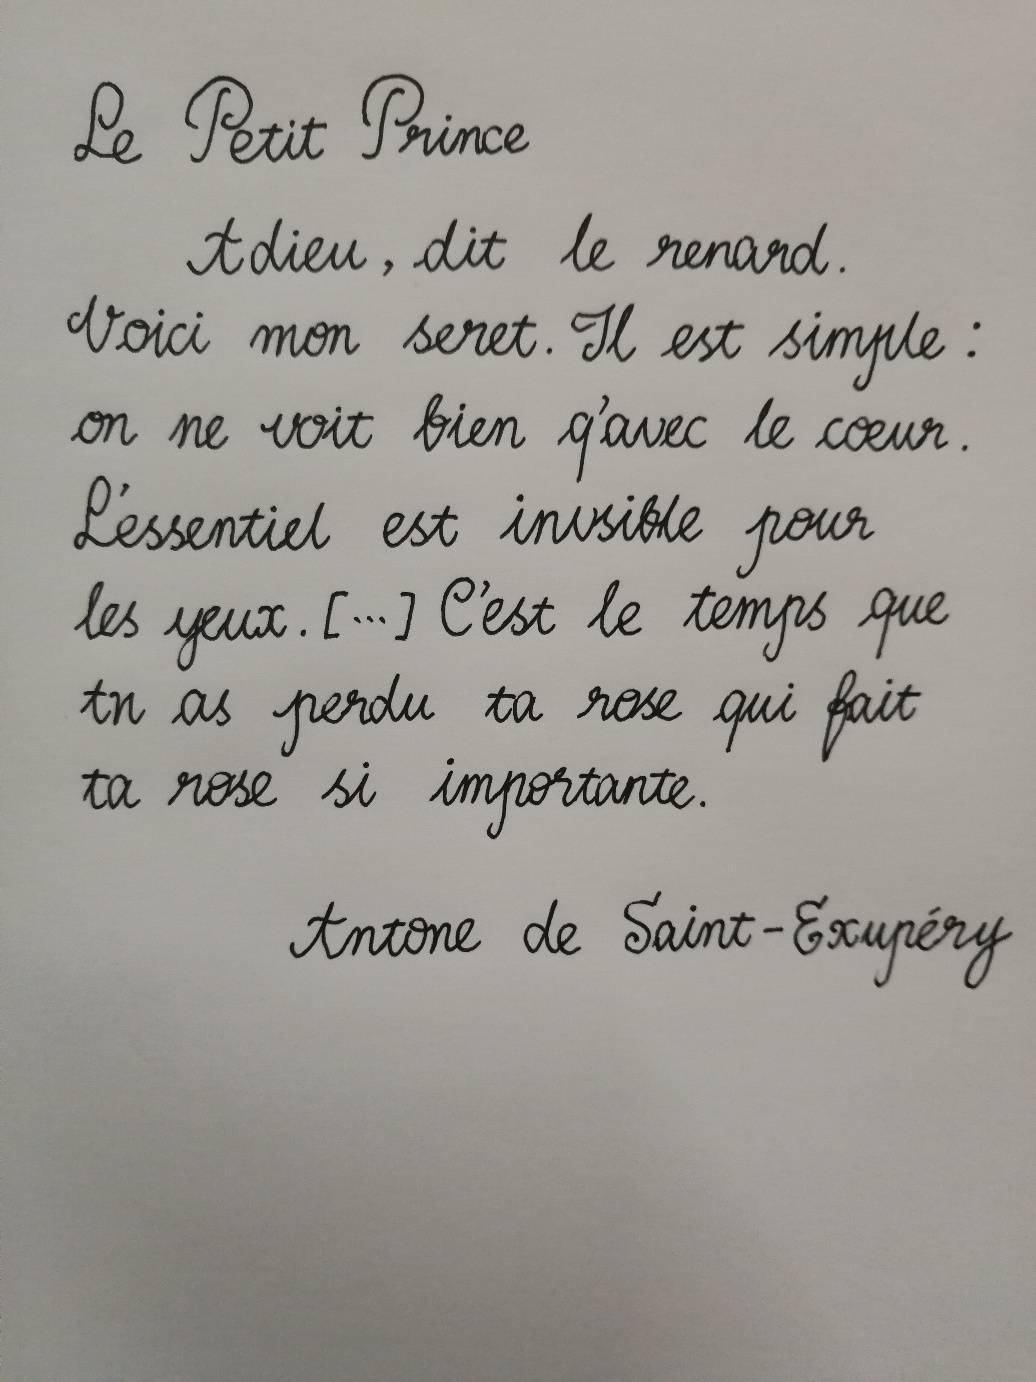 Le Petit Prince
Adieu, dit le renard.
Voici mon seret. Il est simple :
on ne voit bien q'avec le cœur.
L'essentiel est invsible pour
les yeux. [...] C'est le temps que
tn as perdu ta rose qui fait
ta rose si importante.
Antone de Saint-Exupéry